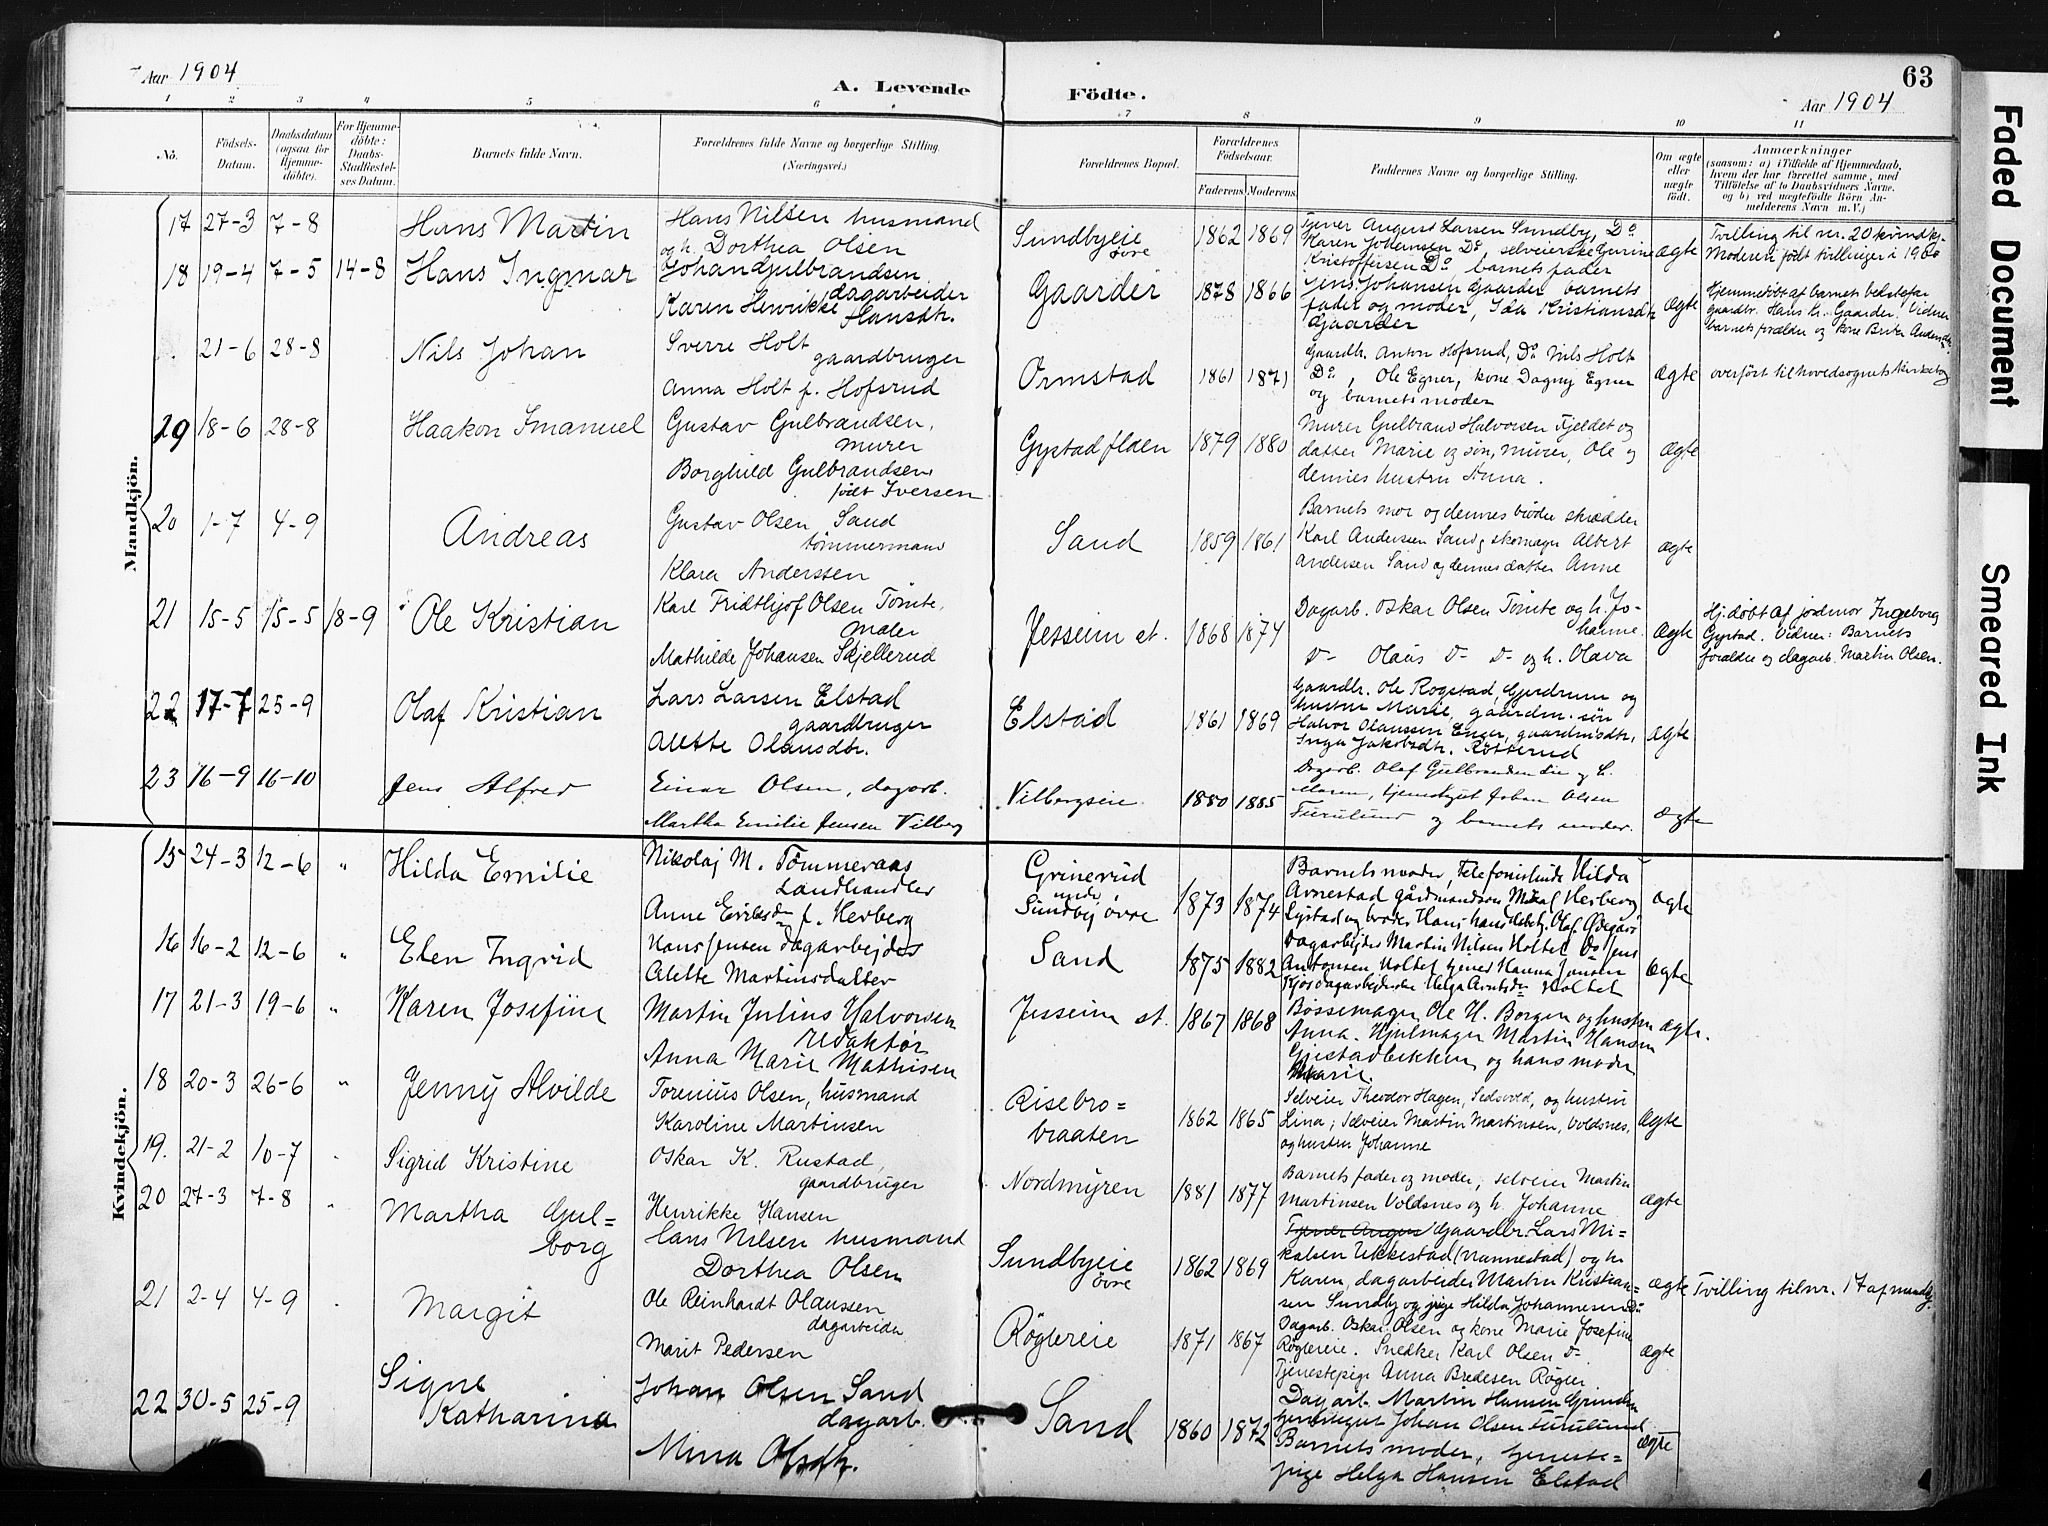 Aar 1904
A. Levende Födte.
63
Aar 1904
1 2 3 4 5 6 7 8 9 10 11
No.
Födsels-Datum.
Daabsdatum (ogsaa for Hjemme-döbte).
For Hjemme-döbte: Daabs-Stadfæstel-ses Datum.
Barnets fulde Navn.
Forældrenes fulde Navne og borgerlige Stilling.
(Næringsvei.)
Forældrenes Bopæl.
Forældrenes Födselsaar.
Faderens. Moderens.
Faddernes Navne og borgerlige Stilling.
Om ægte eller uægte födt.
Anmærkninger
(saasom: a) i Tilfælde af Hjemmedaab, hvem der har forrettet samme, med Tilföielse af to Daabsvidners Navne. og b) ved uægtefödte Börn An-melderens Navn m. V.)
Mandkjön.
17 27-3 7-8 Hans Martin
Hans Nilsen husmand
og h. Dorthea Olsen
Sundbyeie øvre 1862 1869
Tjener August Larsen Sundby, Do
Karen Johansen Do, selveierske Gurine
Kristoffersen Do barnets fader
ægte
Tvilling til nr. 20 kvindkj.
Moderen født tvillinger i 1900
18 19-4 7-5 14-8 Hans Ingmar
Johan Gulbrandsen
dagarbeider
Karen Henrikke Hansdtr.
Gaarder 1878 1866
Jens Johansen Gaarder barnets
fader og moder, Ida Kristiansdtr
Gaarder
ægte
Hjemmedøbt af barnets bedstefar
gaardbr. Hans Kr. Gaarder. Vidner
barnets forældre og kone Berte Andersdtr.
21-6 28-8 Nils Johan
Sverre Holt
gaardbruger
Anna Holt f. Hofsrud
Ormstad 1861 1871
Gaardbr. Anton Hofsrud, Do Nils Holt
Do, Ole Egner, kone Dagny Egner
og barnets moder
Ægte
overført til hovedsognets kirkebog
29 18-6 28-8 Haakon Imanuel
Gustav Gulbrandsen,
murer
Borghild Gulbrandsen
født Iversen
Gystadflaen 1879 1880
Murer Gulbrand Halvorsen Fjeldet og
datter Marie og søn, murer, Ole og
dennes hustru Anna.
ægte
20 1-7 4-9 Andreas
Gustav Olsen Sand
tømmermand
Klara Anderssen
Sand 1859 1861
Barnets mor og dennes broder skrædder
Karl Andersen Sand, skomager Albert
Andersen Sand og dennes datter Anne
ægte
21 15-5 15-5 18-9 Ole Kristian
Karl Fridthjof Olsen Tømte,
maler
Mathilde Johansen Skjellerud
Jesseim st. 1868 1874
Dagarb. Oskar Olsen Tømte og h. Jo-
hanne.
D- Olaus D- D- og h. Olava
Ægte
Hj. døbt af jordmor Ingeborg
Gystad. Vidner: Barnets
forældre og dagarb. Martin Olsen.
22 17-7 25-9 Olaf Kristian
Lars Larsen Elstad
gaardbruger
Alette Olausdtr.
Elstad 1861 1869
Gaardbr. Ole Rogstad, Gjerdrum og
hustru Marie, gaardm. søn
Halvor Olaussen Enger, gaardmsdtr,
Inga Jakobsdtr. Rotterud
ægte
23 16-9 16-10 Jens Alfred
Einar Olsen, dagarb.
Martha Emilie Jensen Vilberg
Vilbergseie 1880 1885
Dagarb. Olaf Gulbrandsen Lie og h.
Maren, tjenestgut Johan Olsen
Furulund og barnets moder.
ægte
Kvindekjön.
15 24-3 12-6 " Hilda Emilie
Nikolaj M. Tømmeraas
Landhandler
Anne Eriksdn f. Herberg
Grinerud
med
Sundby øvre 1873 1874
Barnets moder, Telefonistinde Hilda
Arnestad gårdmandssøn Herberg
Lystad og broder Hans Olaf Ødegård
ægte
16 16-2 12-6 " Elen Ingrid
Hans Jensen dagarbejder
Alette Martinsdatter
Sand 1875 1882
Dagarbejder Martin Nilsen Holtet Do Jens
Antonsen Holtet tjener Hanna Jensen
Helga Holtet
ægte
17 21-3 19-6 " Karen Josefine
Martin Julius Halvorsen
redaktør
Anna Marie Mathisen
Jesseim st. 1867 1868
Bøssemager Ole H. Borgen og hustru
Anna. Hjulmager Martin Hansen
Gjestadbekken og hans moder
Marie.
ægte.
18 20-3 26-6 " Jenny Alvilde
Torenius Olsen, husmand
Karoline Martinsen
Risebro=
braaten 1862 1865
Selveier Theodor Hagen, og hustru
Lina; Selveier Martin Martinsen, Voldsnes,
og hustru Johanne
ægte
19. 21-2 10-7 Sigrid Kristine
Oskar K. Rustad,
gaardbruger
Henrikke Hansen
Nordmyren 1881 1877
Barnets fader og moder, selveier Martin
Martinsen Voldsnes og h. Johanne
ægte
20 27-3 7-8 Martha Gul=
borg
Hans Nilsen husmand
Dorthea Olsen
Sundbyeie øvre 1862 1869
Tjener August Gaardbr. Lars Mi-
kalsen Ukkestad (Nannestad) og h
Karen, dagarbeider Martin Kristian-
sen Sundby og pige Hilda Johannesen Do
ægte
Tvilling til nr. 17 af mandkj.
21 2-4 4-9 Margit
Ole Reinhardt Olaussen
dagarbeider
Marit Pedersen
Røglereie 1871 1867
Dagarb. Oskar Olsen og kone Marie Josefine
Røglereie. Snedker Karl Olsen D-
Tjenestepige Anna Bredesen Røgler
ægte
22 30-5 25-9 Signe
Katharina
Johan Olsen Sand
dagarb.
Mina Olsdtr.
Sand 1860 1872
Dagarb. Martin Hansen
tjenestegut Johan Olsen Furulund
Barnets moder, tjeneste=
pige Helga Hansen Elstad
ægte
Faded Document
Smeared Ink